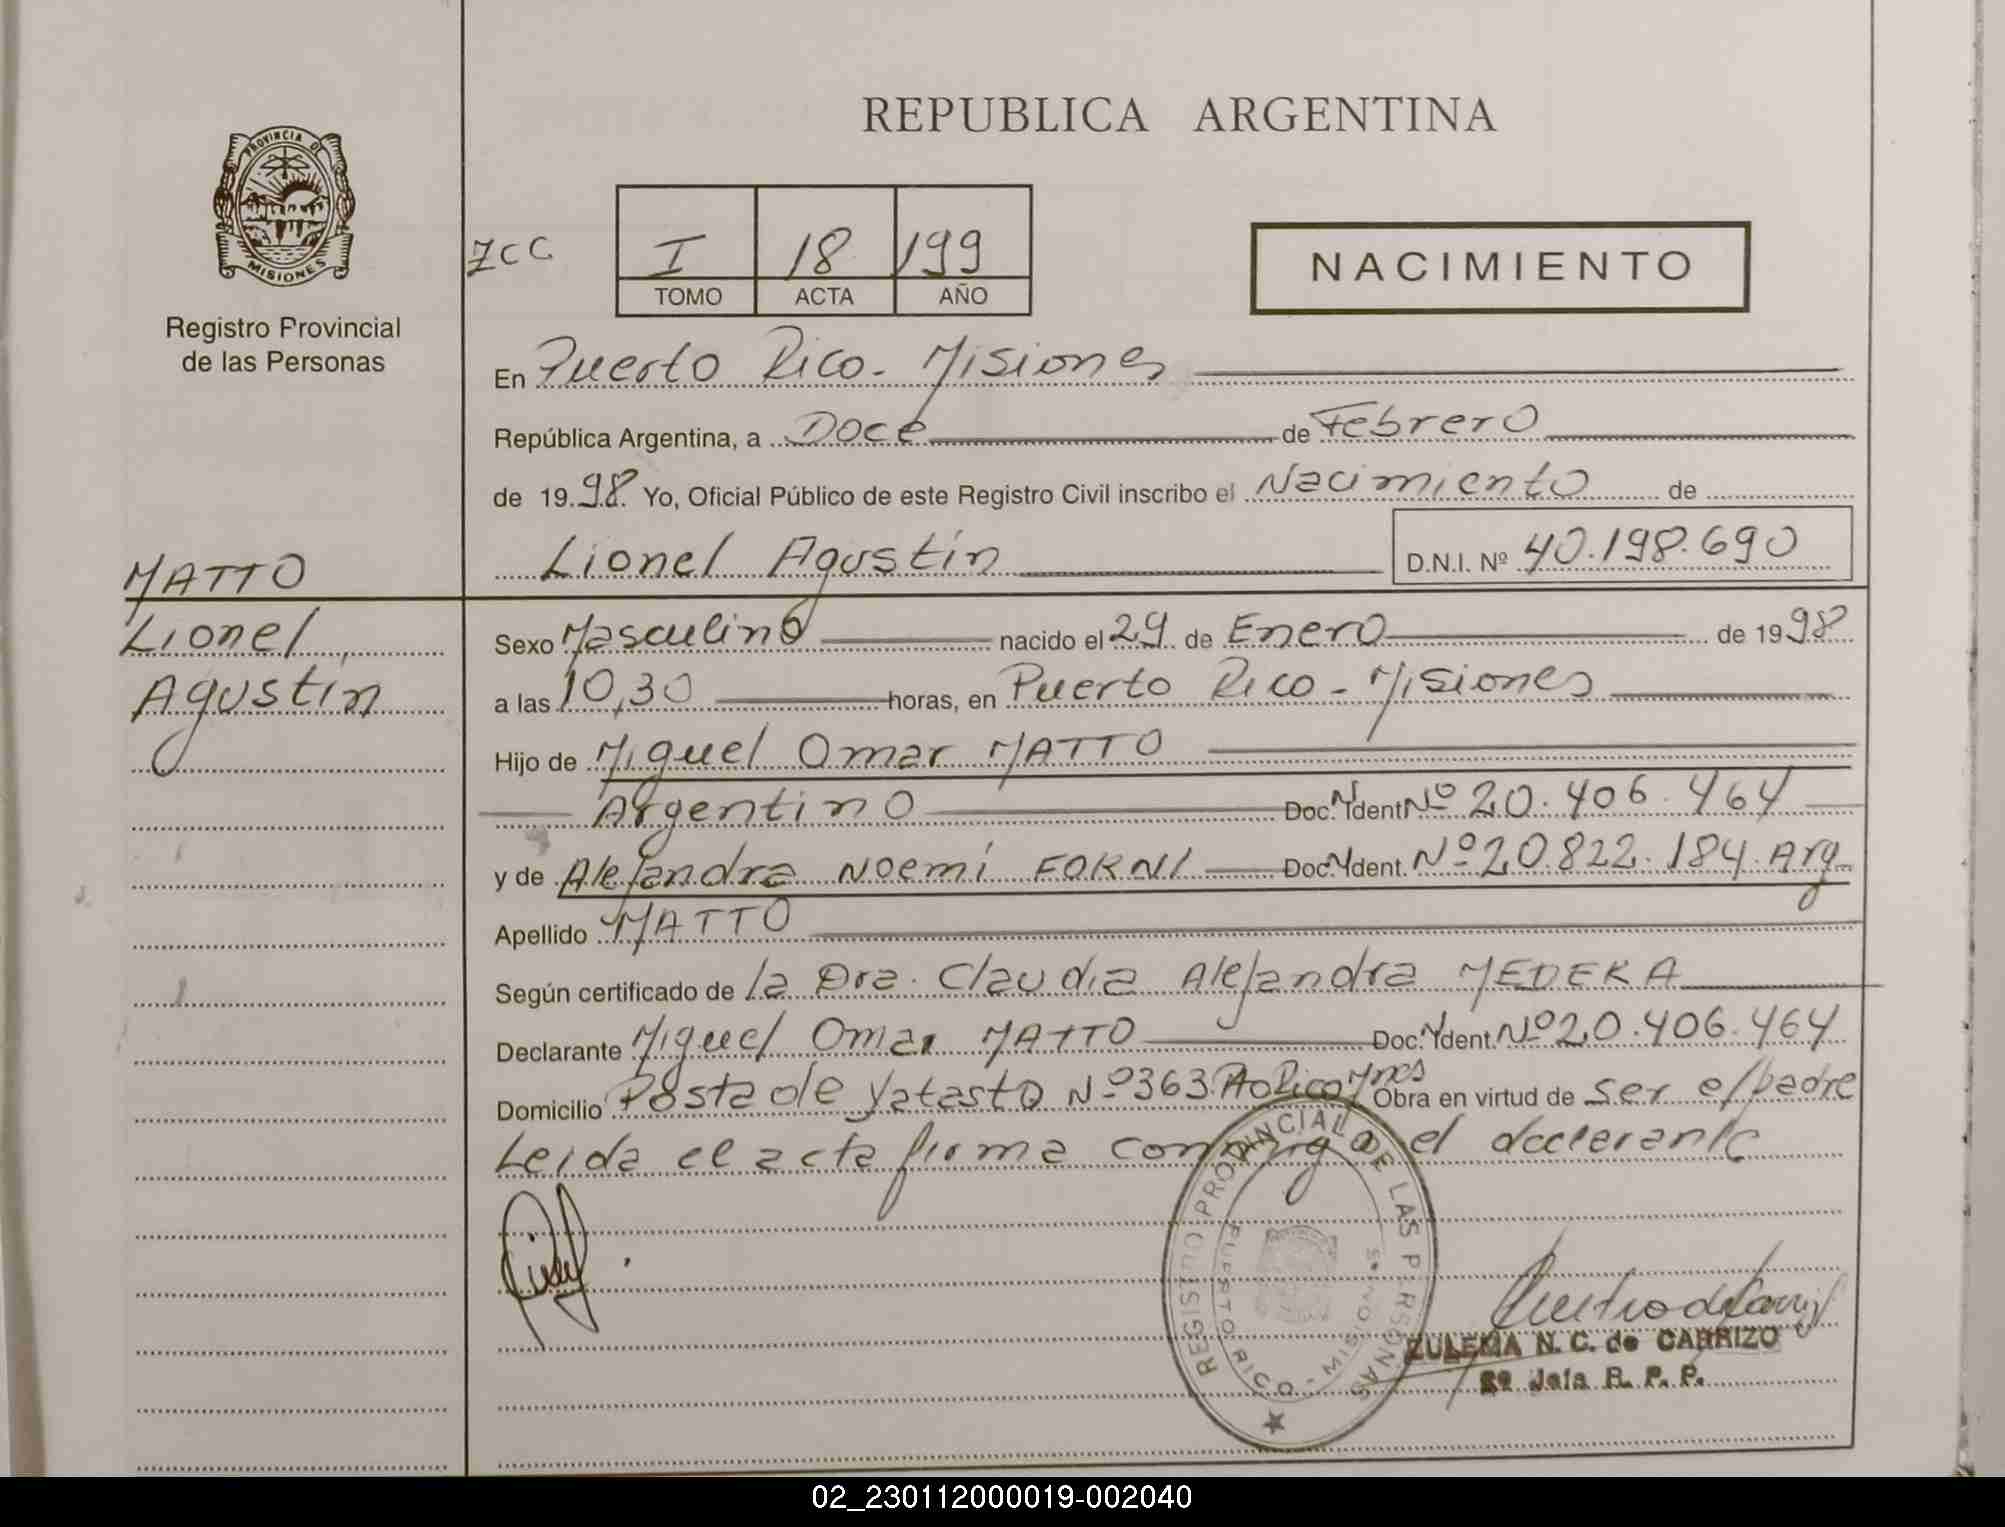 REPUBLICA ARGENTINA
PROVINCIA DE
MISIONES
Registro Provincial
de las Personas
ZCC
I 18 199
TOMO ACTA AÑO
NACIMIENTO
En Puerto Rico - Misiones
República Argentina, a Doce de Febrero
de 1998 Yo, Oficial Público de este Registro Civil inscribo el Nacimiento de
Lionel Agustín D.N.I. Nº 40.198.690
MATTO
Lionel
Agustín
Sexo Masculino nacido el 29 de Enero de 1998
a las 10,30 horas, en Puerto Rico - Misiones
Hijo de Miguel Omar MATTO
Argentino Doc. N. Ident Nº 20.406.464
y de Alejandra Noemí FORNI Doc. N. Ident. Nº 20.822.184. Arg
Apellido MATTO
Según certificado de la Dra. Claudia Alejandra MEDERA
Declarante Miguel Omar MATTO Doc. N. Ident. Nº 20.406.464
Domicilio Posta de Yatasto Nº 363 Pto Rico Mnes Obra en virtud de ser el padre
Leida el acta firma conmigo el declarante
REGISTRO PROVINCIAL DE LAS PERSONAS
PUERTO RICO - MISIONES
ZULEMA N. C. de CARRIZO
Jefa R. P. P.
02_230112000019-002040